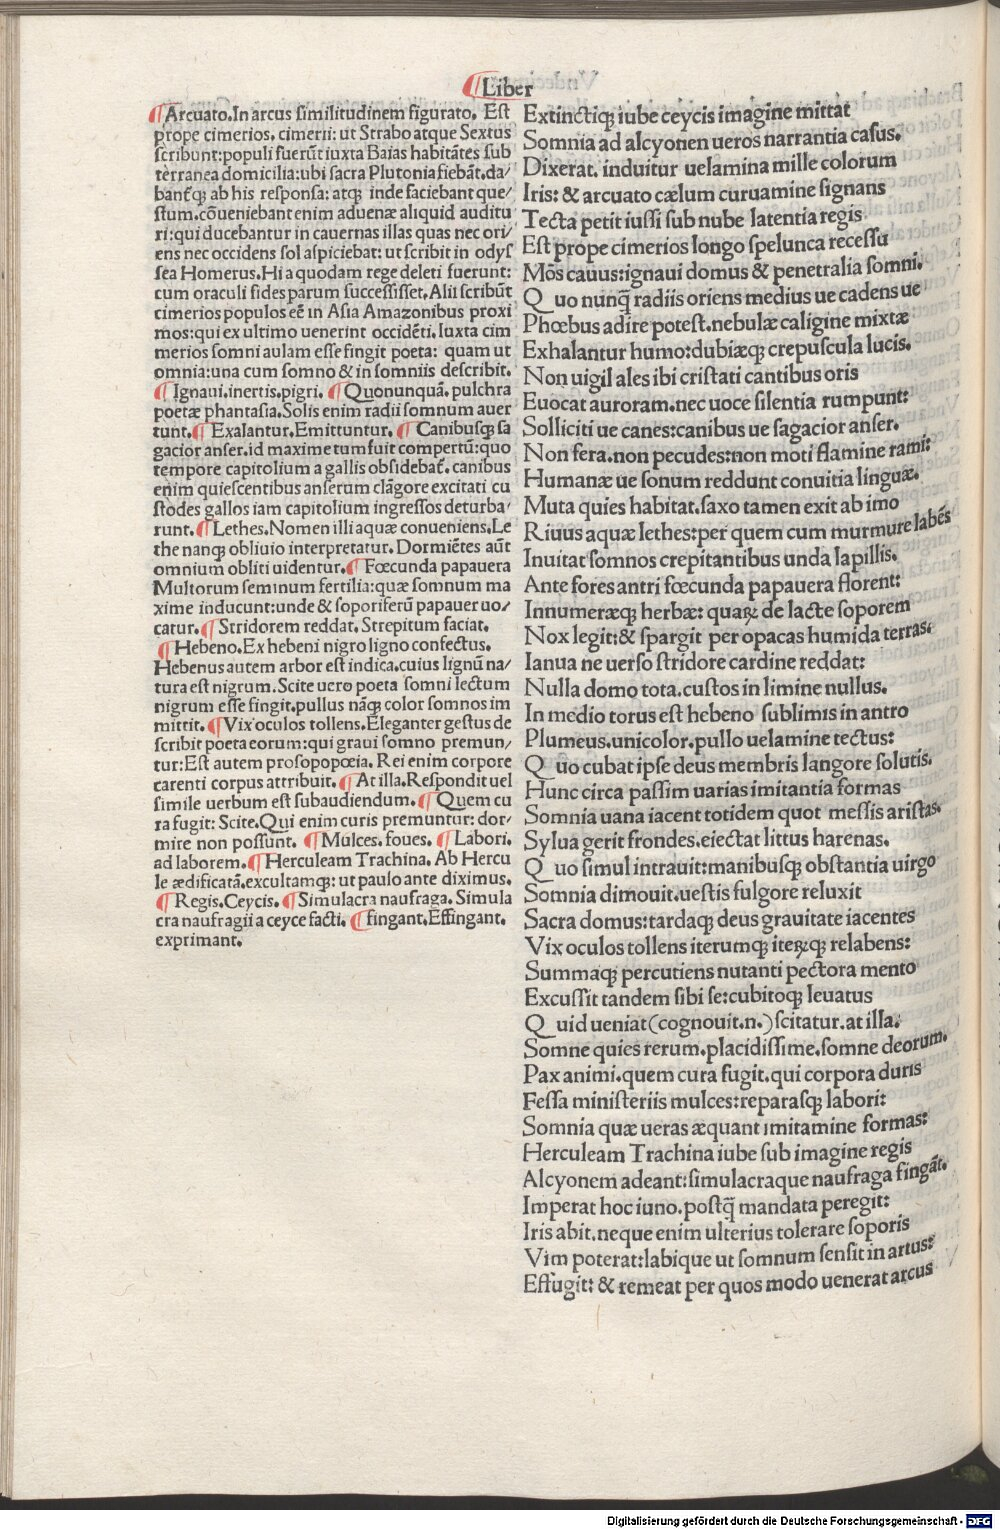 ¶Liber
¶Arcuato.In arcus ſimilitudinem figurato. Eſt
prope cimerios. cimerii: ut Strabo atque Sextus
ſcribunt:populi fuerūt iuxta Baias habitātes ſub
terranea domicilia:ubi ſacra Plutonia fiebāt.da/
bantꝗ ab his reſponſa: atꝗ inde faciebant que/
ſtum.cōueniebant enim aduenæ aliquid auditu
ri:qui ducebantur in cauernas illas quas nec ori/
ens nec occidens ſol aſpiciebat: ut ſcribit in odyſ
ſea Homerus.Hi a quodam rege deleti fuerunt:
cum oraculi fides parum ſucceſſiſſet.Alii ſcribūt
cimerios populos eē in Aſia Amazonibus proxi
mos:qui ex ultimo uenerint occidēti.Iuxta cim
merios ſomni aulam eſſe fingit poeta: quam ut
omnia:una cum ſomno & in ſomniis deſcribit.
¶Ignaui.inertis.pigri. ¶Quonunquā.pulchra
poetæ phantaſia.Solis enim radii ſomnum auer
tunt.¶Exalantur.Emittuntur. ¶Canibuſꝗ ſa
gacior anſer.id maxime tum fuit compertū:quo
tempore capitolium a gallis obſidebat̄. canibus
enim quieſcentibus anſerum clāgore excitati cu
ſtodes gallos iam capitolium ingreſſos deturba/
runt.¶Lethes.Nomen illi aquæ conueniens.Le
the nanꝗ obliuio interpretatur.Dormiētes aūt
omnium obliti uidentur.¶Fœcunda papauera
Multorum ſeminum fertilia:quæ ſomnum ma
xime inducunt:unde & ſoporiferū papauer uo/
catur.¶Stridorem reddat. Strepitum faciat.
¶Hebeno.Ex hebeni nigro ligno confectus.
Hebenus autem arbor eſt indica.cuius lignū na/
tura eſt nigrum.Scite uero poeta ſomni lectum
nigrum eſſe fingit.pullus nāꝗ color ſomnos im
mittit.¶Vix oculos tollens.Eleganter geſtus de
ſcribit poeta eorum:qui graui ſomno premun/
tur:Eſt autem proſopopœia. Rei enim corpore
carenti corpus attribuit.¶At illa.Reſpondit uel
ſimile uerbum eſt ſubaudiendum.¶Quem cu
ra fugit: Scite.Qui enim curis premuntur: dor/
mire non poſſunt. ¶Mulces. foues. ¶Labori.
ad laborem.¶Herculeam Trachina. Ab Hercu
le ædificatā.excultamꝗ: ut paulo ante diximus.
¶Regis.Ceycis.¶Simulacra naufraga. Simula
cra naufragii a ceyce facti.¶fingant.Effingant.
exprimant.
Extinctiꝗ iube ceycis imagine mittat
Somnia ad alcyonen ueros narrantia caſus.
Dixerat. induitur uelamina mille colorum
Iris: & arcuato cælum curuamine ſignans
Tecta petit iuſſi ſub nube latentia regis
Eſt prope cimerios longo ſpelunca receſſu
Mōs cauus:ignaui domus & penetralia ſomni.
Q uo nunq̄ radiis oriens medius ue cadens ue
Phœbus adire poteſt.nebulæ caligine mixtæ
Exhalantur humo:dubiæꝗ crepuſcula lucis.
Non uigil ales ibi criſtati cantibus oris
Euocat auroram.nec uoce ſilentia rumpunt:
Solliciti ue canes:canibus ue ſagacior anſer.
Non fera.non pecudes:non moti flamine rami:
Humanæ ue ſonum reddunt conuitia linguæ.
Muta quies habitat.ſaxo tamen exit ab imo
Riuus aquæ lethes:per quem cum murmure labēs
Inuitat ſomnos crepitantibus unda lapillis.
Ante fores antri fœcunda papauera florent:
Innumeræꝗ herbæ: quaꝝ de lacte ſoporem
Nox legit:& ſpargit per opacas humida terras.
Ianua ne uerſo ſtridore cardine reddat:
Nulla domo tota.cuſtos in limine nullus.
In medio torus eſt hebeno ſublimis in antro
Plumeus.unicolor.pullo uelamine tectus:
Q uo cubat ipſe deus membris langore ſolutis.
Hunc circa paſſim uarias imitantia formas
Somnia uana iacent totidem quot meſſis ariſtas.
Sylua gerit frondes.eiectat littus harenas.
Q uo ſimul intrauit:manibuſꝗ obſtantia uirgo
Somnia dimouit.ueſtis fulgore reluxit
Sacra domus:tardaꝗ deus grauitate iacentes
Vix oculos tollens iterumꝗ iteꝝꝗ relabens:
Summaꝗ percutiens nutanti pectora mento
Excuſſit tandem ſibi ſe:cubitoꝗ leuatus
Q uid ueniat(cognouit.n.)ſcitatur.at illa.
Somne quies rerum.placidiſſime.ſomne deorum.
Pax animi.quem cura fugit.qui corpora duris
Feſſa miniſteriis mulces:reparaſꝗ labori:
Somnia quæ ueras æquant imitamine formas:
Herculeam Trachina iube ſub imagine regis
Alcyonem adeant:ſimulacraque naufraga fingāt.
Imperat hoc iuno.poſtq̄ mandata peregit:
Iris abit.neque enim ulterius tolerare ſoporis
Vim poterat:labique ut ſomnum ſenſit in artus:
Effugit: & remeat per quos modo uenerat arcus
Digitalisierung gefördert durch die Deutsche Forschungsgemeinschaft - DFG